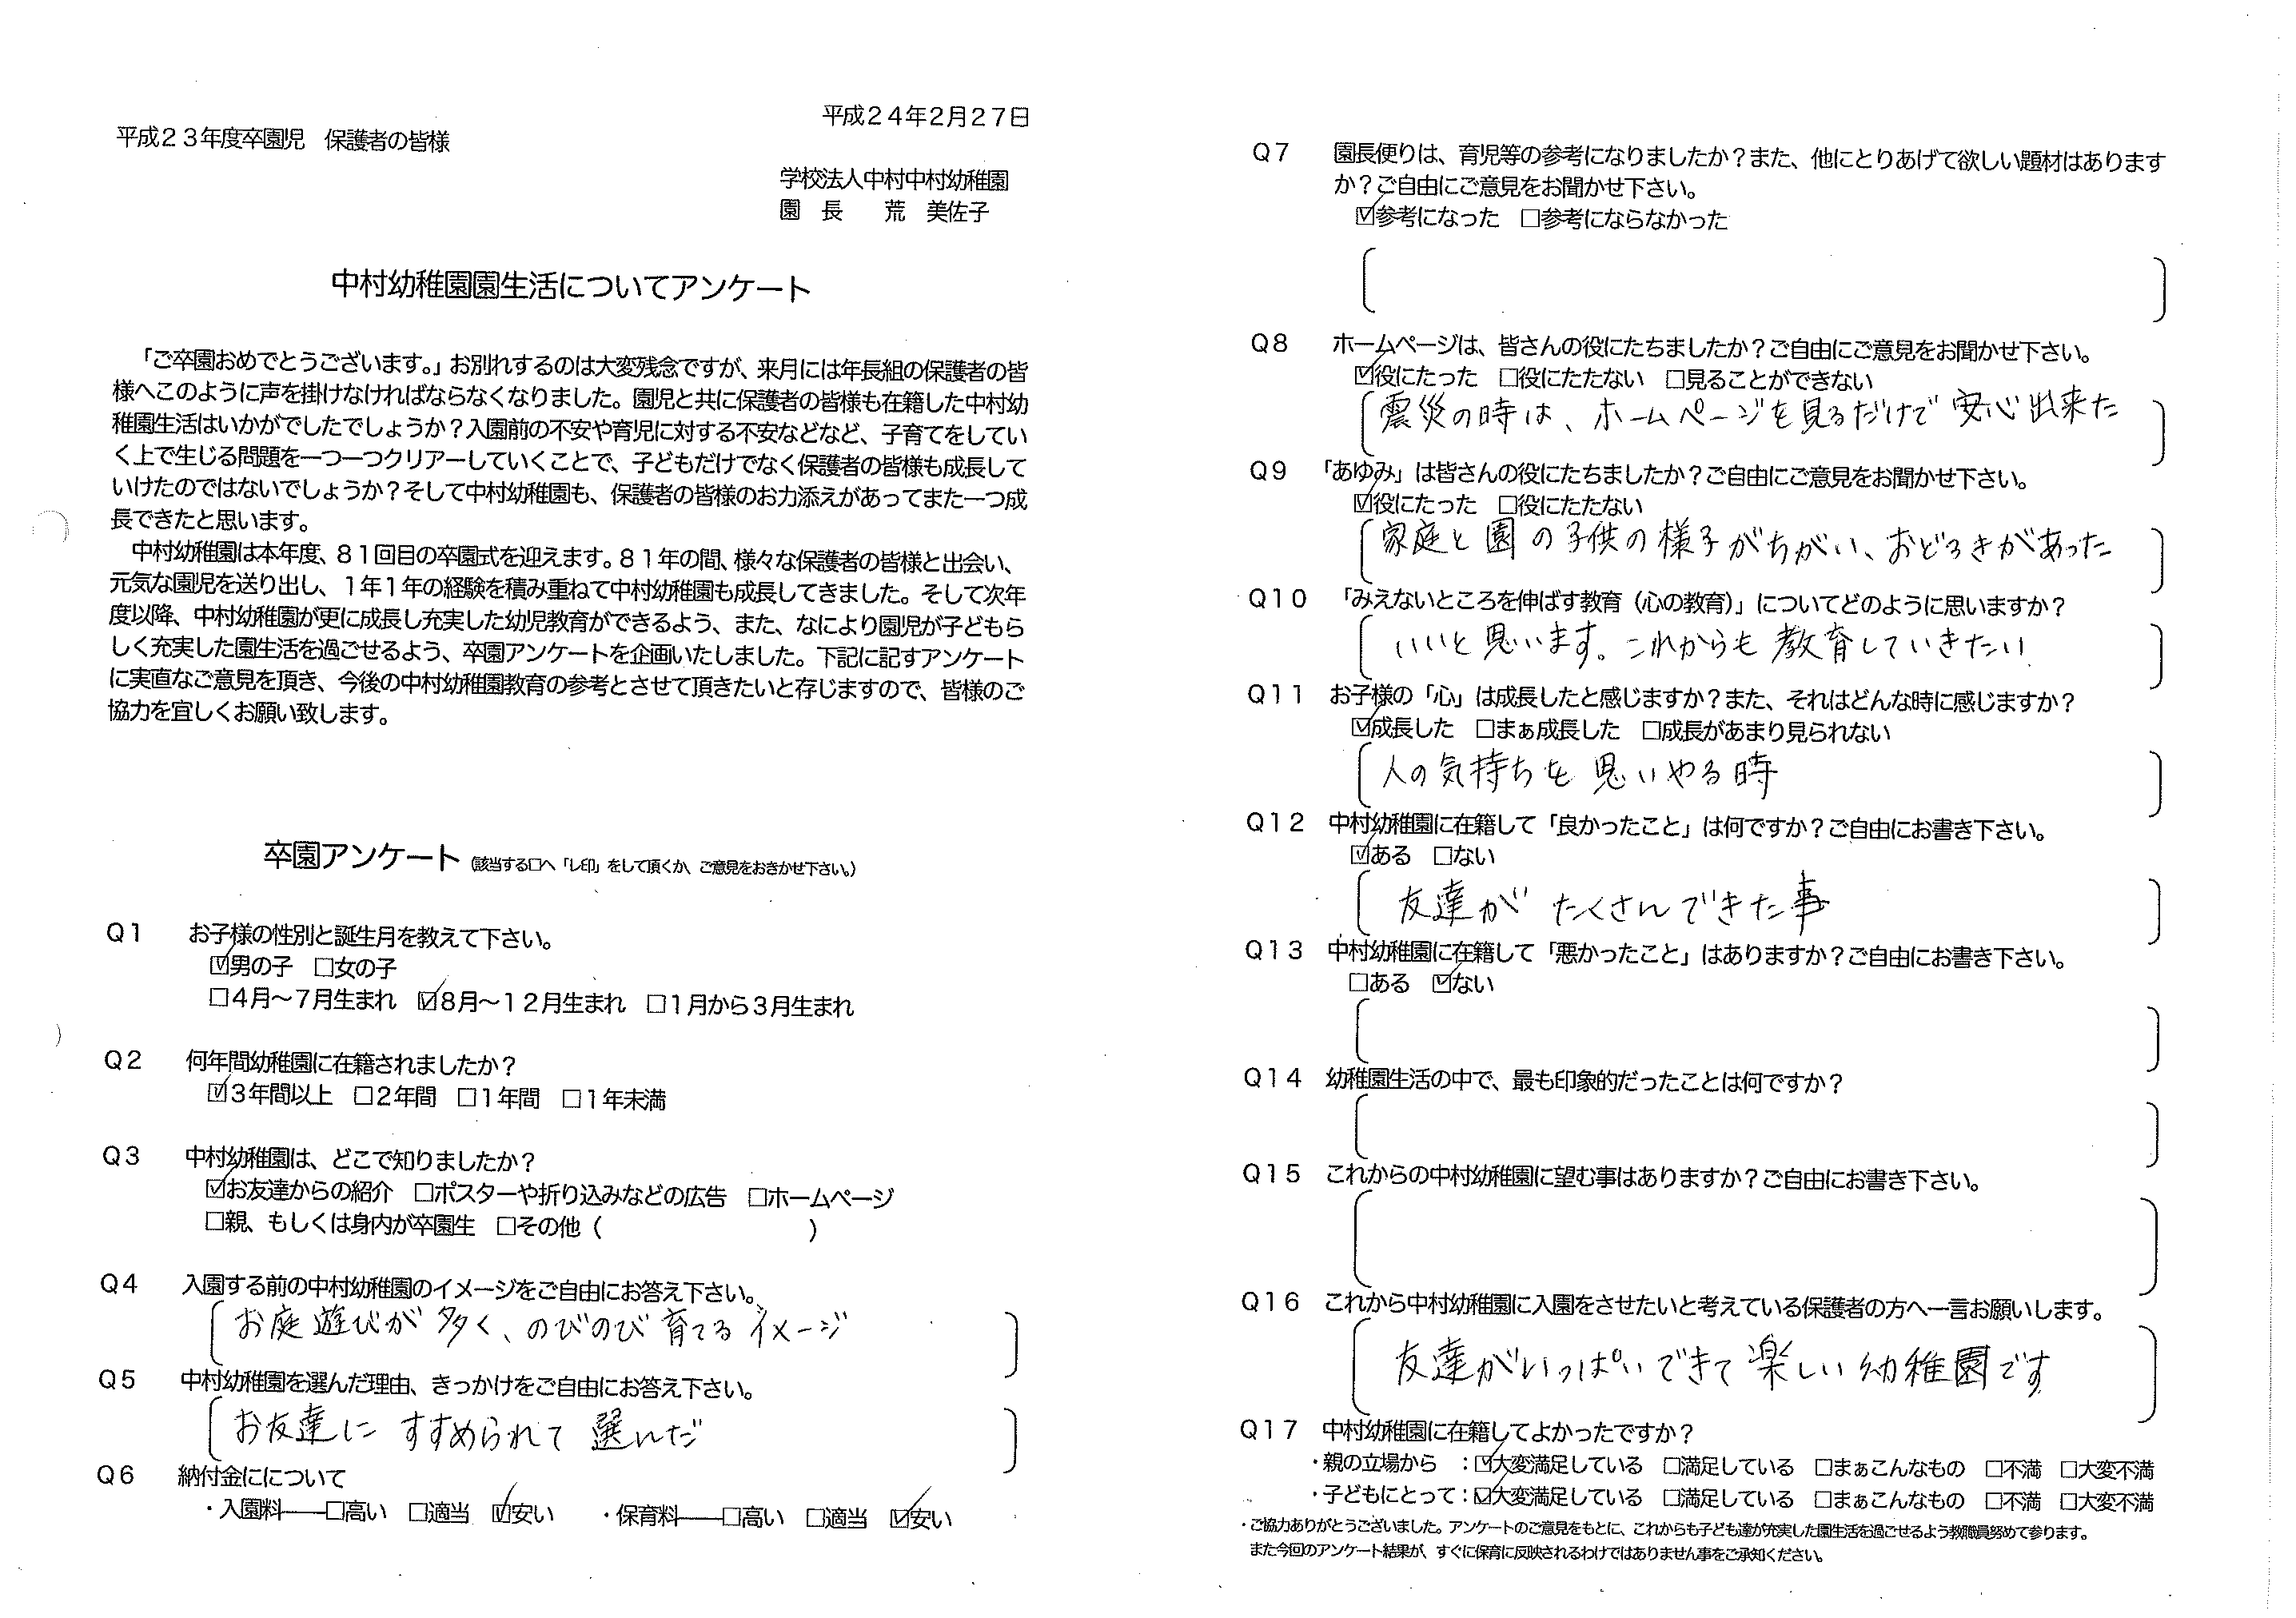 平成24年2月27日
平成23年度卒園児　保護者の皆様
学校法人中村中村幼稚園
園　長　　荒　美佐子
中村幼稚園園生活についてアンケート
「ご卒園おめでとうございます。」お別れするのは大変残念ですが、来月には年長組の保護者の皆
様へこのように声を掛けなければならなくなりました。園児と共に保護者の皆様も在籍した中村幼
稚園生活はいかがでしたでしょうか？入園前の不安や育児に対する不安などなど、子育てをしてい
く上で生じる問題を一つ一つクリアーしていくことで、子どもだけでなく保護者の皆様も成長して
いけたのではないでしょうか？そして中村幼稚園も、保護者の皆様のお力添えがあってまた一つ成
長できたと思います。
中村幼稚園は本年度、81回目の卒園式を迎えます。81年の間、様々な保護者の皆様と出会い、
元気な園児を送り出し、1年1年の経験を積み重ねて中村幼稚園も成長してきました。そして次年
度以降、中村幼稚園が更に成長し充実した幼児教育ができるよう、また、なにより園児が子どもら
しく充実した園生活を過ごせるよう、卒園アンケートを企画いたしました。下記に記すアンケート
に実直なご意見を頂き、今後の中村幼稚園教育の参考とさせて頂きたいと存じますので、皆様のご
協力を宜しくお願い致します。
卒園アンケート（該当する□へ「レ印」をして頂くか、ご意見をおきかせ下さい。）
Q1　お子様の性別と誕生月を教えて下さい。
☑男の子　□女の子
□4月～7月生まれ　☑8月～12月生まれ　□1月から3月生まれ
Q2　何年間幼稚園に在籍されましたか？
☑3年間以上　□2年間　□1年間　□1年未満
Q3　中村幼稚園は、どこで知りましたか？
☑お友達からの紹介　□ポスターや折り込みなどの広告　□ホームページ
□親、もしくは身内が卒園生　□その他（　　　　　　　　　）
Q4　入園する前の中村幼稚園のイメージをご自由にお答え下さい。
お庭遊びが多く、のびのび育てるイメージ
Q5　中村幼稚園を選んだ理由、きっかけをご自由にお答え下さい。
お友達にすすめられて選んだ
Q6　納付金にについて
・入園料――□高い　□適当　☑安い　　・保育料――□高い　□適当　☑安い
Q7　園長便りは、育児等の参考になりましたか？また、他にとりあげて欲しい題材はあります
か？ご自由にご意見をお聞かせ下さい。
☑参考になった　□参考にならなかった
Q8　ホームページは、皆さんの役にたちましたか？ご自由にご意見をお聞かせ下さい。
☑役にたった　□役にたたない　□見ることができない
震災の時は、ホームページを見るだけで安心出来た
Q9　「あゆみ」は皆さんの役にたちましたか？ご自由にご意見をお聞かせ下さい。
☑役にたった　□役にたたない
家庭と園の子供の様子がちがい、おどろきがあった
Q10　「みえないところを伸ばす教育（心の教育）」についてどのように思いますか？
いいと思います。これからも教育していきたい
Q11　お子様の「心」は成長したと感じますか？また、それはどんな時に感じますか？
☑成長した　□まぁ成長した　□成長があまり見られない
人の気持ちを思いやる時
Q12　中村幼稚園に在籍して「良かったこと」は何ですか？ご自由にお書き下さい。
☑ある　□ない
友達がたくさんできた事
Q13　中村幼稚園に在籍して「悪かったこと」はありますか？ご自由にお書き下さい。
□ある　☑ない
Q14　幼稚園生活の中で、最も印象的だったことは何ですか？
Q15　これからの中村幼稚園に望む事はありますか？ご自由にお書き下さい。
Q16　これから中村幼稚園に入園をさせたいと考えている保護者の方へ一言お願いします。
友達がいっぱいできて楽しい幼稚園です
Q17　中村幼稚園に在籍してよかったですか？
・親の立場から　：☑大変満足している　□満足している　□まぁこんなもの　□不満　□大変不満
・子どもにとって：☑大変満足している　□満足している　□まぁこんなもの　□不満　□大変不満
・ご協力ありがとうございました。アンケートのご意見をもとに、これからも子ども達が充実した園生活を過ごせるよう教職員努めて参ります。
また今回のアンケート結果が、すぐに保育に反映されるわけではありません事をご承知ください。